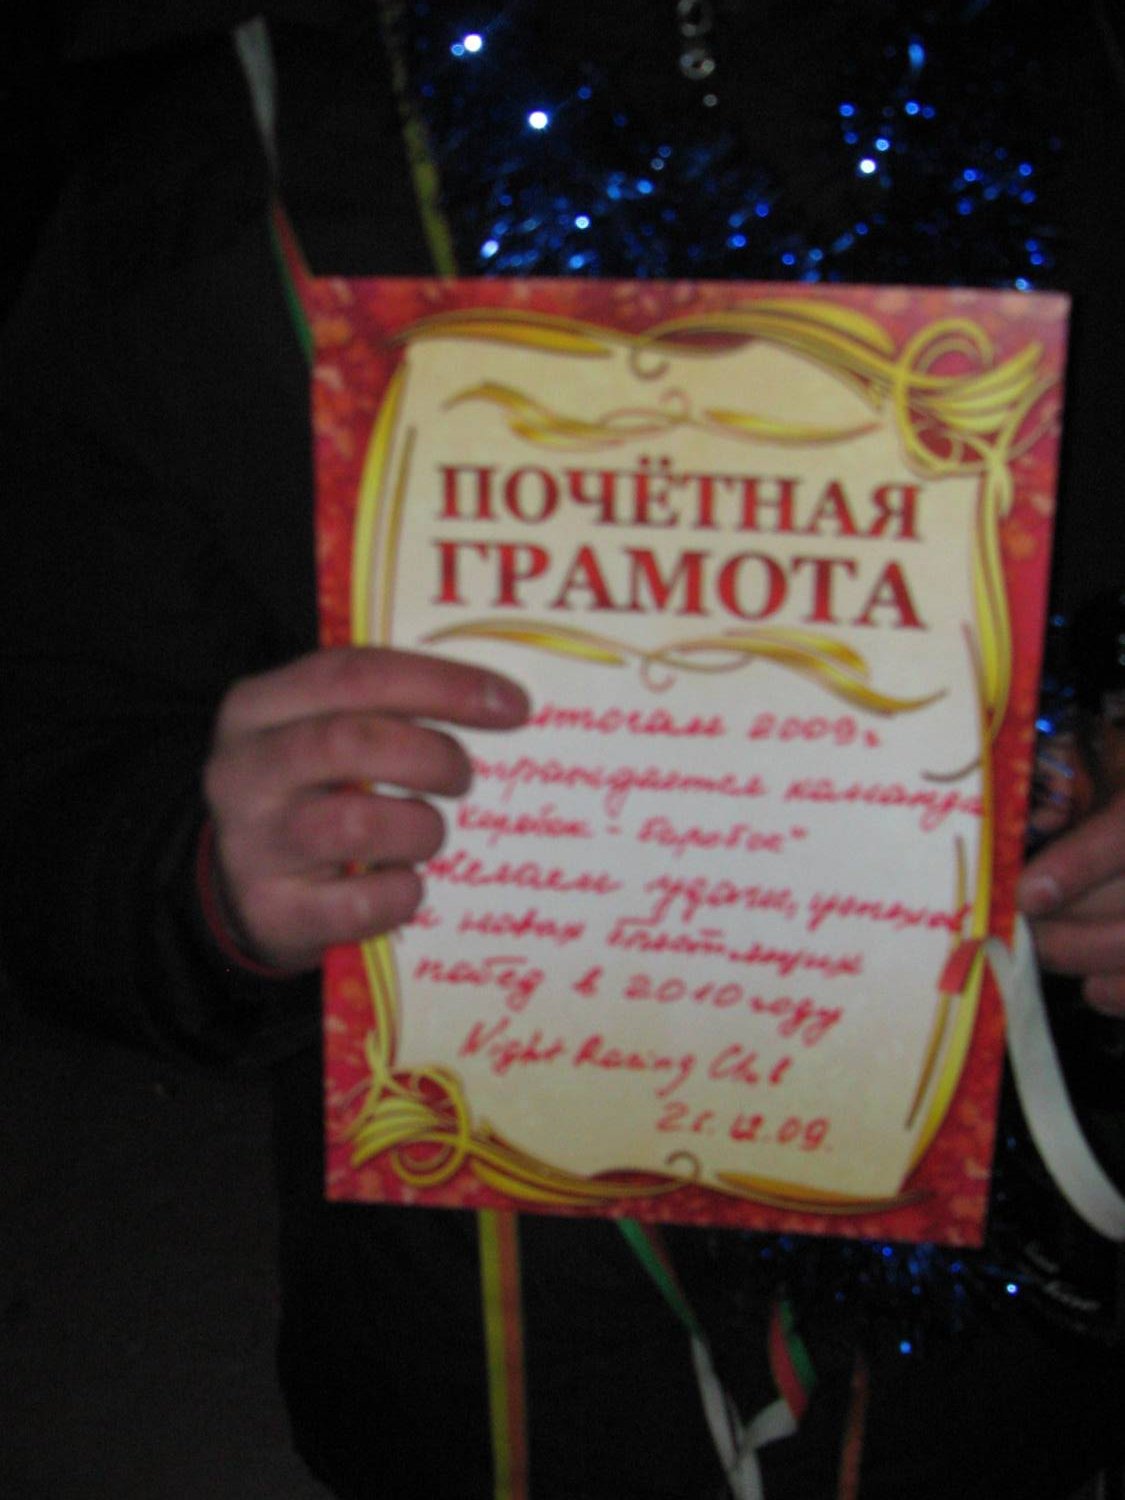 ПОЧЁТНАЯ
ГРАМОТА
итогам 2009г
награждается команда
"Коробок - баробок"
Желаем удачи, успехов
и новых блестящих
побед в 2010 году
Night Racing Club
12.09.